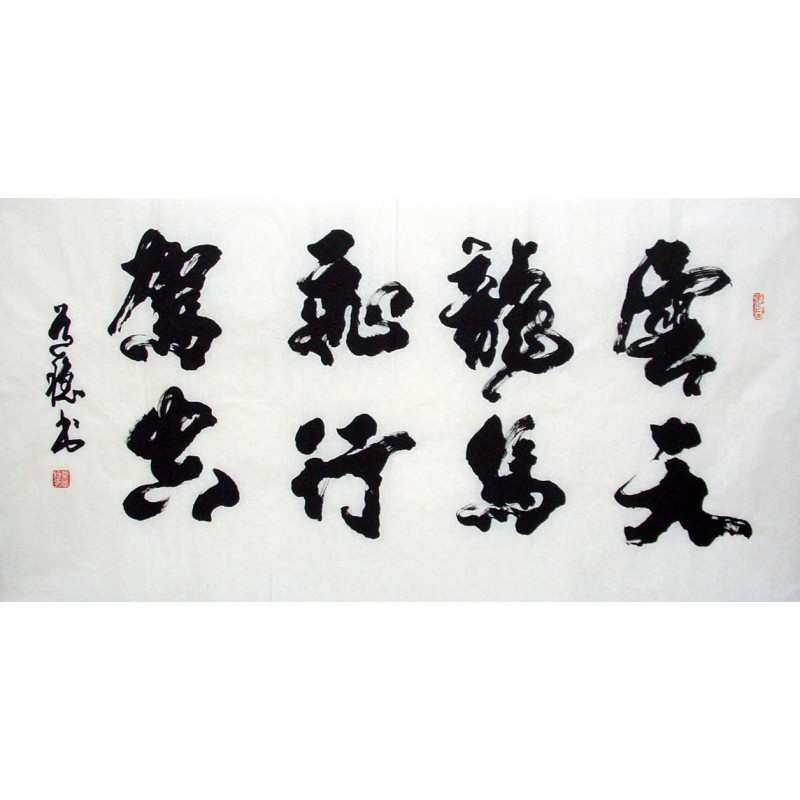 雲龍飛駕
天馬行空
書